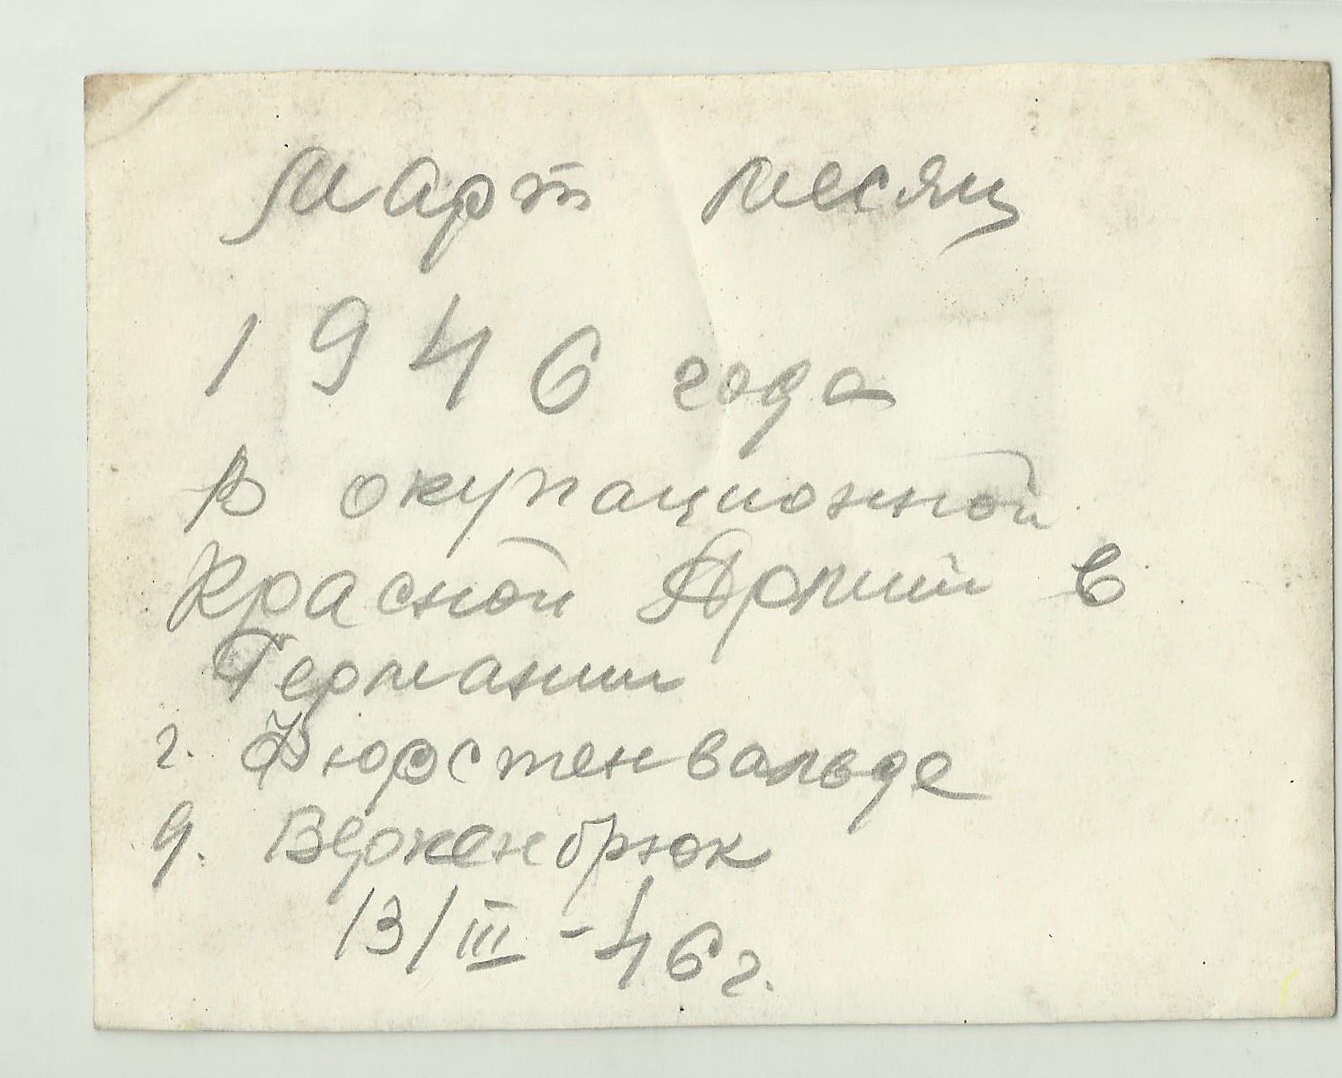 Март месяц
1946 года
В окупационной
Красной Армии в
Германии
г. Фюрстенвальде
д. Беркенбрюк
13/III - 46 г.